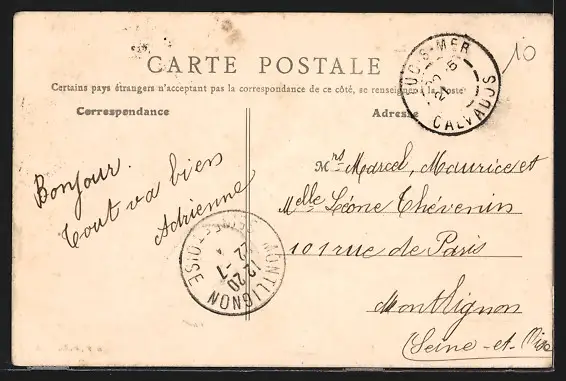 CARTE POSTALE
Certains pays étrangers n'acceptant pas la correspondance de ce côté, se renseigner à la Poste
Correspondance
Adresse
Bonjour.
Tout va bien
Adrienne
Mrs Marcel, Maurice et
Melle Léone Thévenin
101 rue de Paris
Montlignon
(Seine-et-Oise
LUC-S-MER
CALVADOS
MONTLIGNON
SEINE-ET-OISE
12 20
22 -7
10